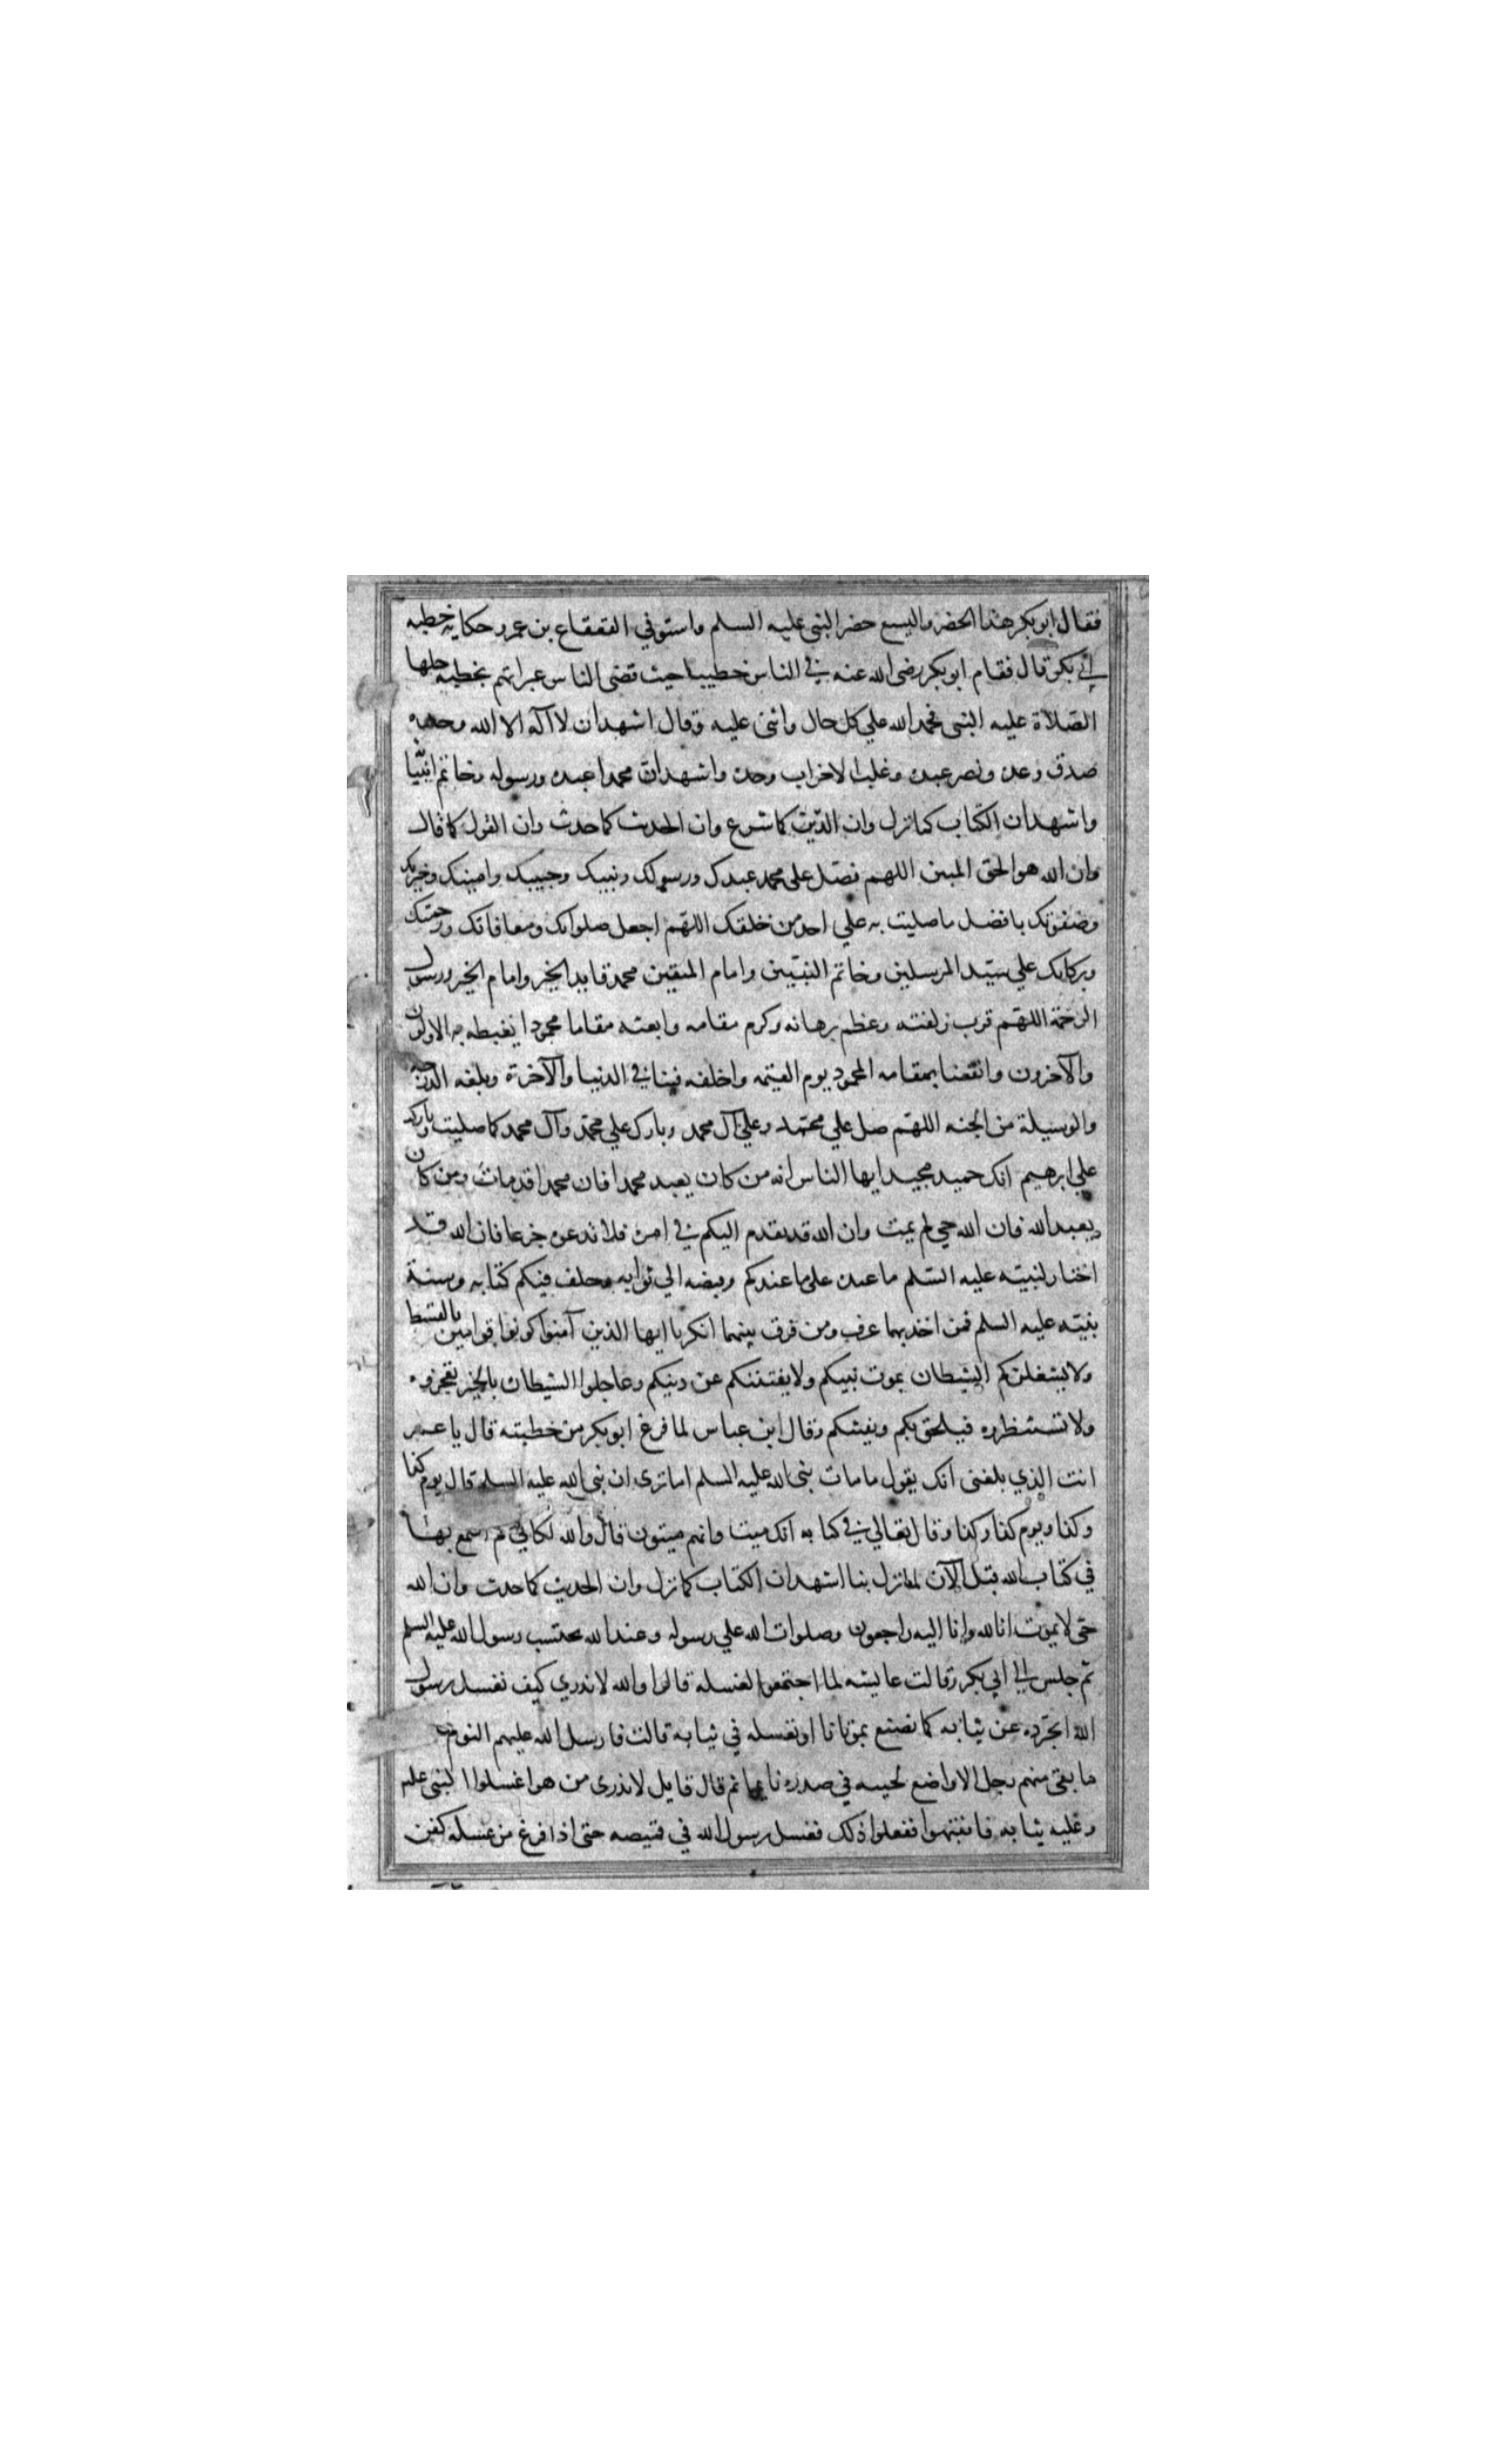 فقال ابو بكر هذا الخضر واليسع حضر النبى عليه السلم واستوفي القعقاع بن عمرو حكايه خطبه
ابي بكر قال فقام ابو بكر رضى الله عنه في الناس خطيبا حيث قضى الناس عبراتهم بخطبه جلها
الصلاة عليه النبى فحمد الله علي كل حال واثنى عليه وقال اشهد ان لا اله الا الله وحده
صدق وعده ونصر عبده وغلب الاحزاب وحده واشهد ان محمدا عبده ورسوله وخاتم انبيا
واشهد ان الكتاب كما نزل وان الدين كما شرع وان الحديث كما حدث وان القول كما قال
وان الله هو الحق المبين اللهم فصل على محمد عبدك ورسولك ونبيك وحبيبك وامينك وخيرتك
وصفوتك بافضل ما صليت به علي احد من خلقك اللهم اجعل صلواتك ومعافاتك ورحمتك
وبركاتك علي سيد المرسلين وخاتم النبيين وامام المتقين محمد قايد الخير وامام الخير ورسول
الرحمة اللهم قرب زلفته وعظم برهانه وكرم مقامه وابعثه مقاما محمودا يغبطه به الاولون
والآخرون وانفعنا بمقامه المحمود يوم القيمه واخلفه فينا في الدنيا والآخرة وبلغه الدرجة
والوسيلة من الجنه اللهم صل علي محمد وعلي آل محمد وبارك علي محمد وآل محمد كما صليت وباركت
علي ابرهيم انك حميد مجيد ايها الناس انه من كان يعبد محمدا فان محمدا قد مات ومن كان
يعبد الله فان الله حي لم يمت وان الله قد تقدم اليكم في امره فلا تدعوه جزعا فان الله قد
اختار لنبيه عليه السلم ما عنده على ما عندكم وقبضه الي ثوابه وخلف فيكم كتابه وسنة
نبيه عليه السلم فمن اخذ بهما عرف ومن فرق بينهما انكر يا ايها الذين آمنوا كونوا قوامين بالقسط
ولا يشغلنكم الشيطان بموت نبيكم ولا يفتننكم عن دينكم وعاجلوا الشيطان بالخير تعجزوه
ولا تستنظروه فيلحق بكم ويفتنكم وقال ابن عباس لما فرغ ابو بكر من خطبته قال يا عمر
انت الذي بلغنى انك تقول ما مات نبى الله عليه السلم اما ترى ان نبى الله عليه السلم قال يوم كذا
وكذا ويوم كذا وكذا وقال تعالي في كتابه انك ميت وانهم ميتون قال والله لكاني لم اسمع بها
في كتاب الله قبل الآن لما نزل بنا اشهد ان الكتاب كما نزل وان الحديث كما حدث وان الله
حى لا يموت انا لله وانا اليه راجعون وصلوات الله علي رسوله وعند الله نحتسب رسول الله عليه السلم
ثم جلس الي ابي بكر وقالت عايشه لما اجتمعوا لغسله قالوا والله لا ندري كيف نغسل رسول
الله انجرده عن ثيابه كما نصنع بموتانا او نغسله في ثيابه قالت فارسل الله عليهم النوم
ما بقى منهم رجل الا واضع لحيته في صدره نايما ثم قال قايل لا ندرى من هو اغسلوا النبى عليه
وعليه ثيابه فانتبهوا ففعلوا ذلك فغسل رسول الله في قميصه حتى اذا فرغ من غسله كفن